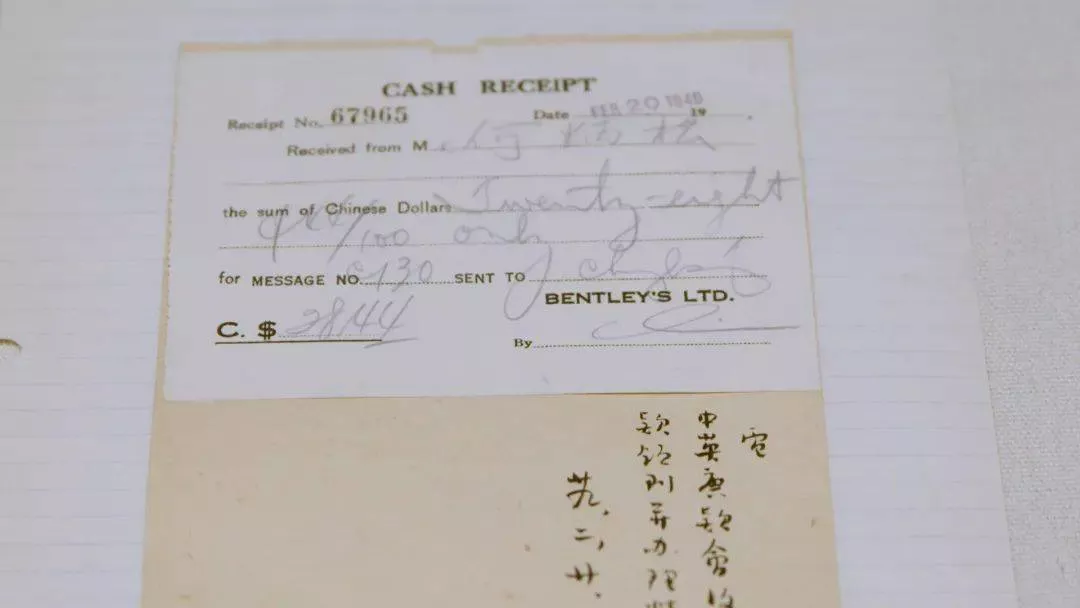 CASH RECEIPT
Receipt No. 67965 Date FEB 20 1940 19
Received from M. 何
the sum of Chinese Dollars Twenty-eight
44/100 only
for MESSAGE NO. 130 SENT TO
BENTLEY'S LTD.
C. $ 28.44
By
電
中英庚款會
款 則 并办理
廿九、二、廿、